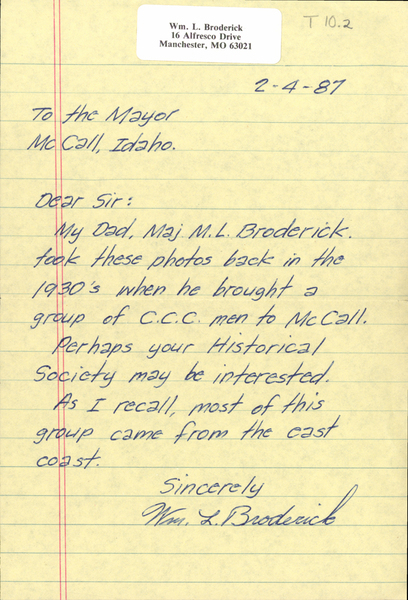 Wm. L. Broderick
16 Alfresco Drive
Manchester, MO 63021
T 10.2
2-4-87
To the Mayor
McCall, Idaho.
Dear Sir:
My Dad, Maj M.L. Broderick.
took these photos back in the
1930's when he brought a
group of C.C.C. men to McCall.
Perhaps your Historical
Society may be interested.
As I recall, most of this
group came from the east
coast.
Sincerely
Wm. L. Broderick